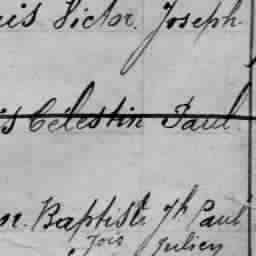 is Victor Joseph
is Célestin Paul
Baptiste Jh Paul
Jois Julien